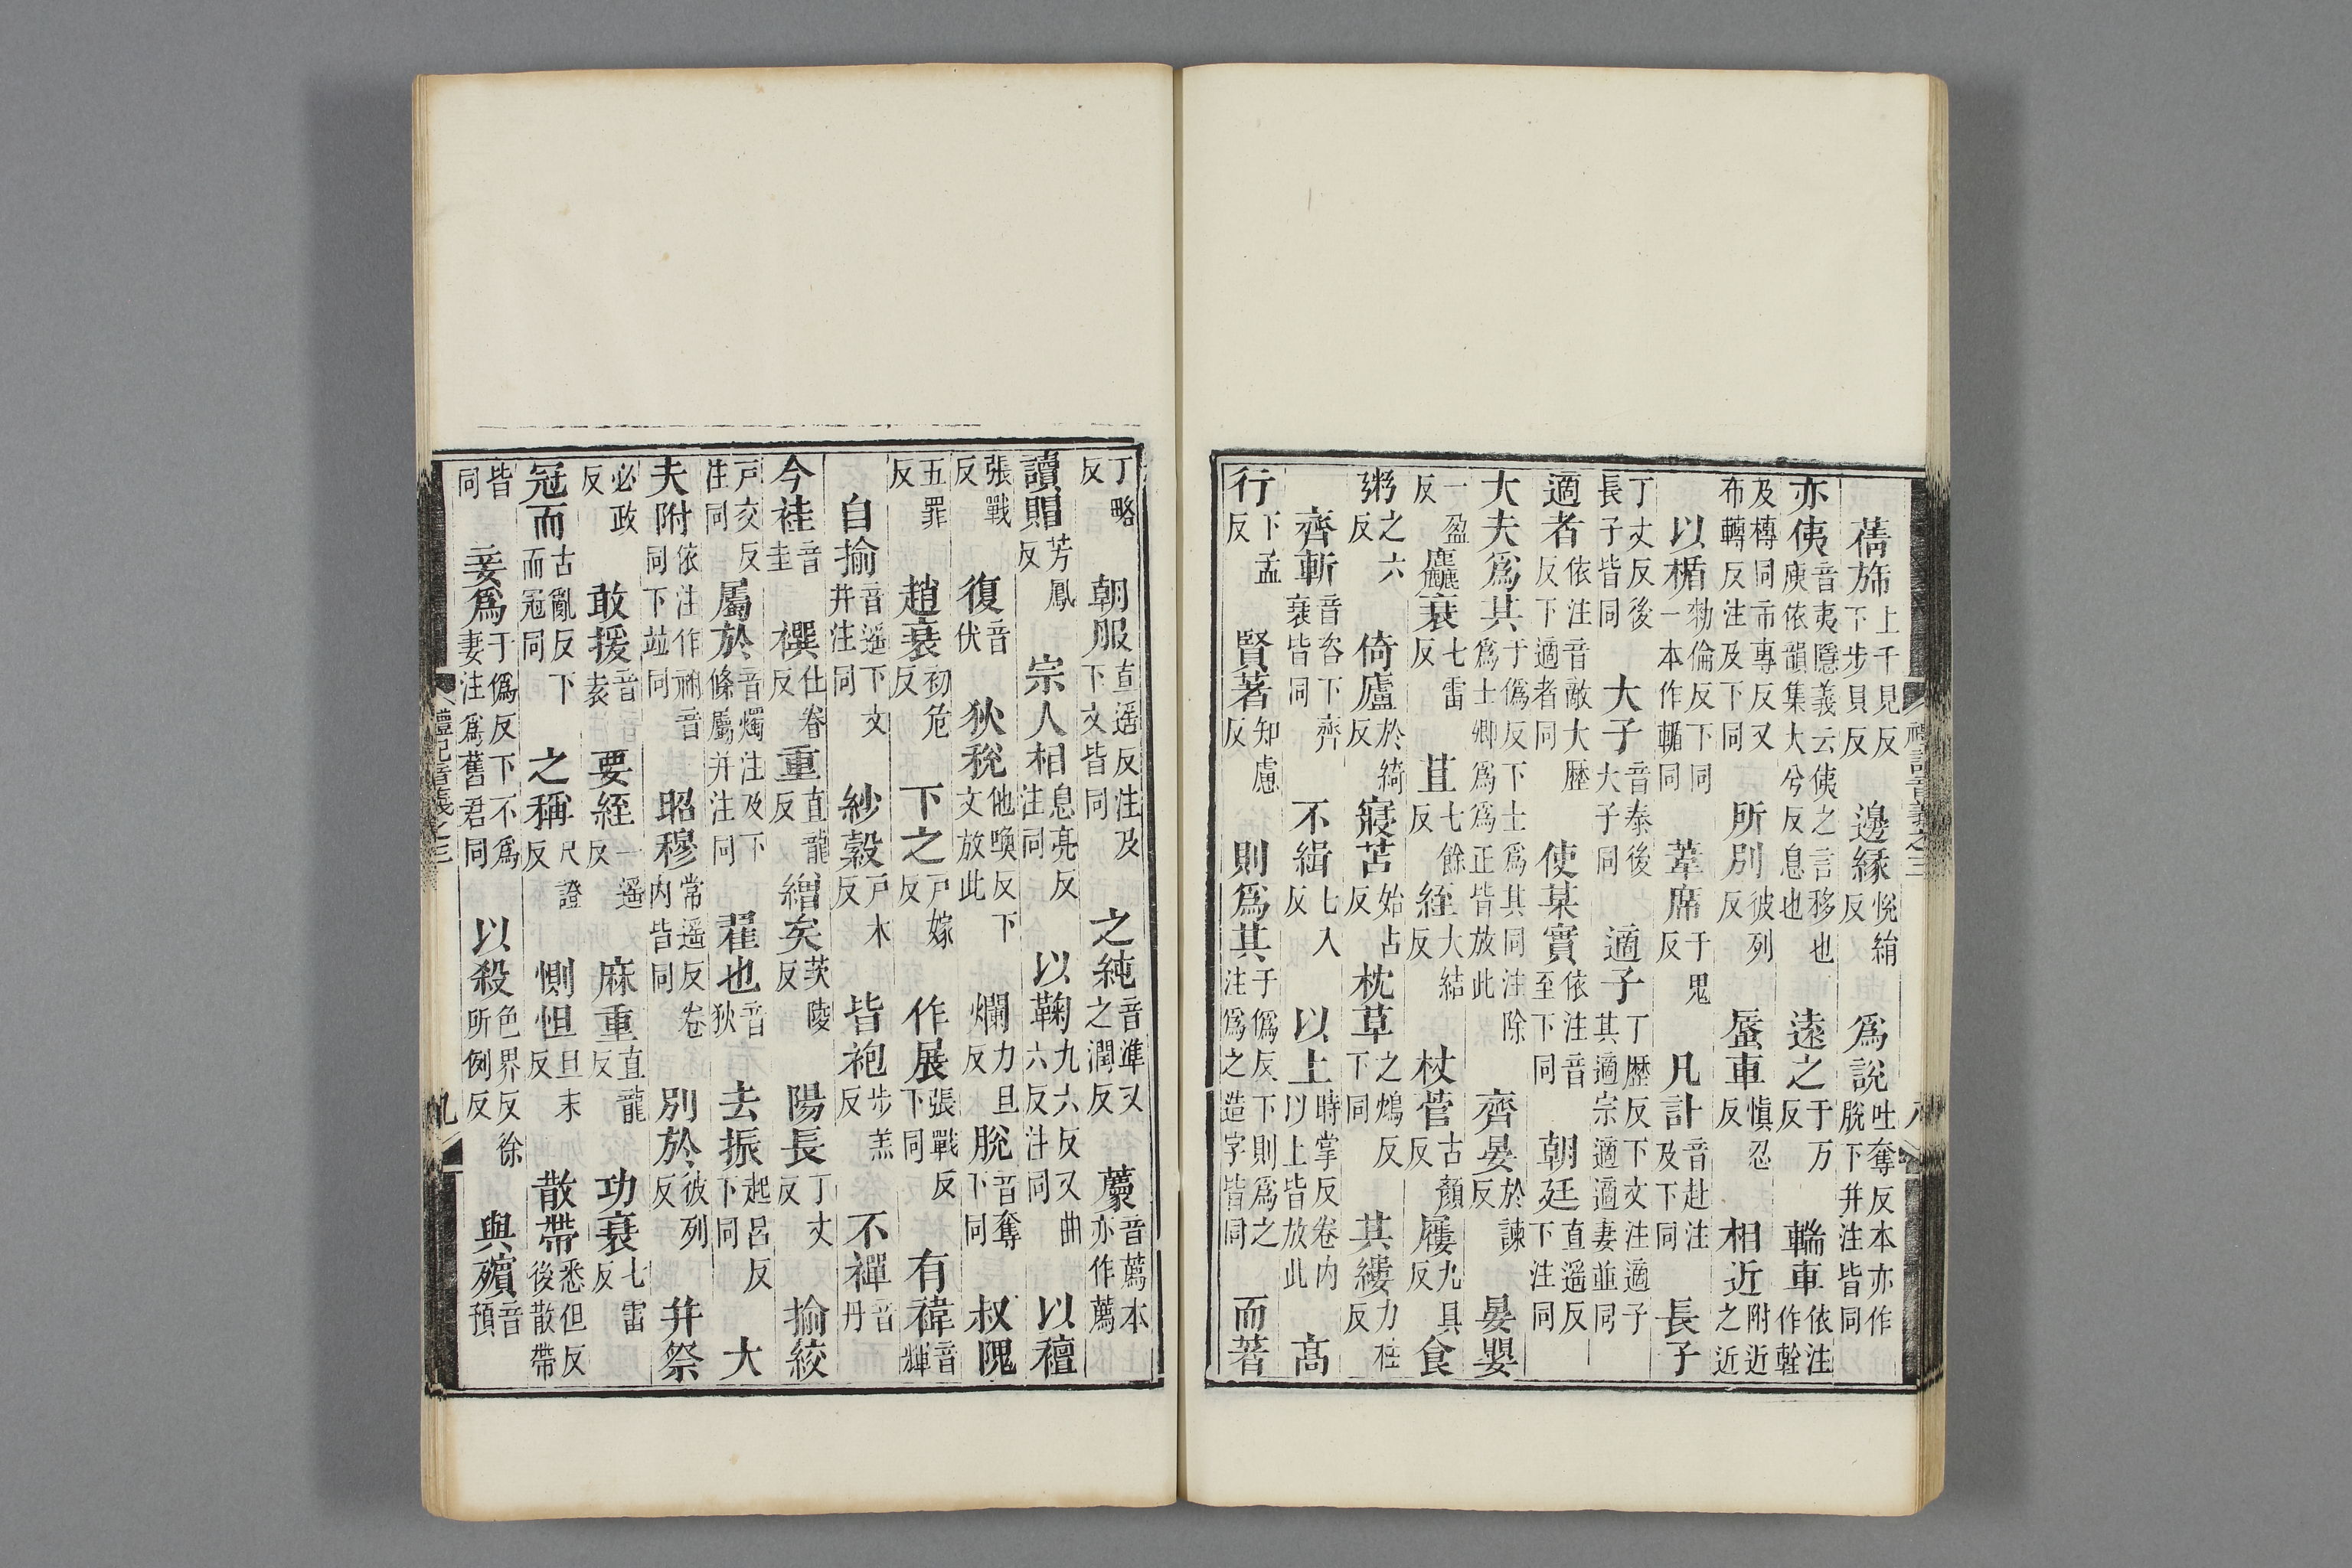 蒨斾上千見反下步貝反 邊緣悅絹反 爲說吐奪反本亦作脫下幷注皆同
亦侇音夷隱義云侇之言移也庾依韻集大兮反息也 遠之于万反 輲車依注作輇
及槫同市專反又布轉反注及下同 所別彼列反 蜃車愼忍反 相近附近之近
以楯勑倫反下同一本作輴同 葦席于鬼反 凡計音赴注及下同 長子
丁丈反後長子皆同 大子音泰後大子同 適子丁歷反下文注適子其適宗適適妻並同
適者依注音敵大歷反下適者同 使某實依注音至下同 朝廷直遥反下注同
大夫爲其于僞反下士爲其同注除爲士卿爲爲正皆放此 齊晏於諫反 晏嬰
一盈反 麤衰七雷反 苴七餘反 絰大結反 杖菅古顏反 屨九具反 食
粥之六反 倚廬於綺反 寢苫始占反 枕草之鴆反下同 其縷力柱反
齊斬音咨下齊衰皆同 不緝七入反 以上時掌反卷内以上皆放此 高
行下孟反 賢著知慮反 則爲其于僞反下則爲之注爲之造字皆同 而著
禮記音義之三 八
丁略反 朝服直遥反注及下文皆同 之純音準又之潤反 藨音薦本亦作薦
讀賵芳鳳反 宗人相息亮反注同 以鞠九六反又曲六反注同 以襢
張戰反 復音伏 狄稅他喚反下文放此 爛力旦反 脫音奪下同 叔隗
五罪反 趙衰初危反 下之戶嫁反 作展張戰反下同 有褘音輝
自揄音遥下文幷注同 紗縠戶木反 皆袍步羔反 不禪音丹
今袿音圭 襈仕眷反 重直龍反 繒矣茨陵反 陽長丁丈反 揄絞
戶交反注同 屬於音燭注及下條屬幷注同 翟也音狄 去振起呂反下同 大
夫附依注作祔音同下竝同 昭穆常遥反卷内皆同 別於彼列反 幷祭
必政反 敢援音袁 要絰一遥反 麻重直龍反 功衰七雷反
冠而古亂反下而冠同 之稱尺證反 惻怛旦末反 散帶悉但反後散帶
皆同 妾爲于僞反下不爲妻注爲舊君同 以殺色界反徐所例反 與殯音預
禮記音義之三 九